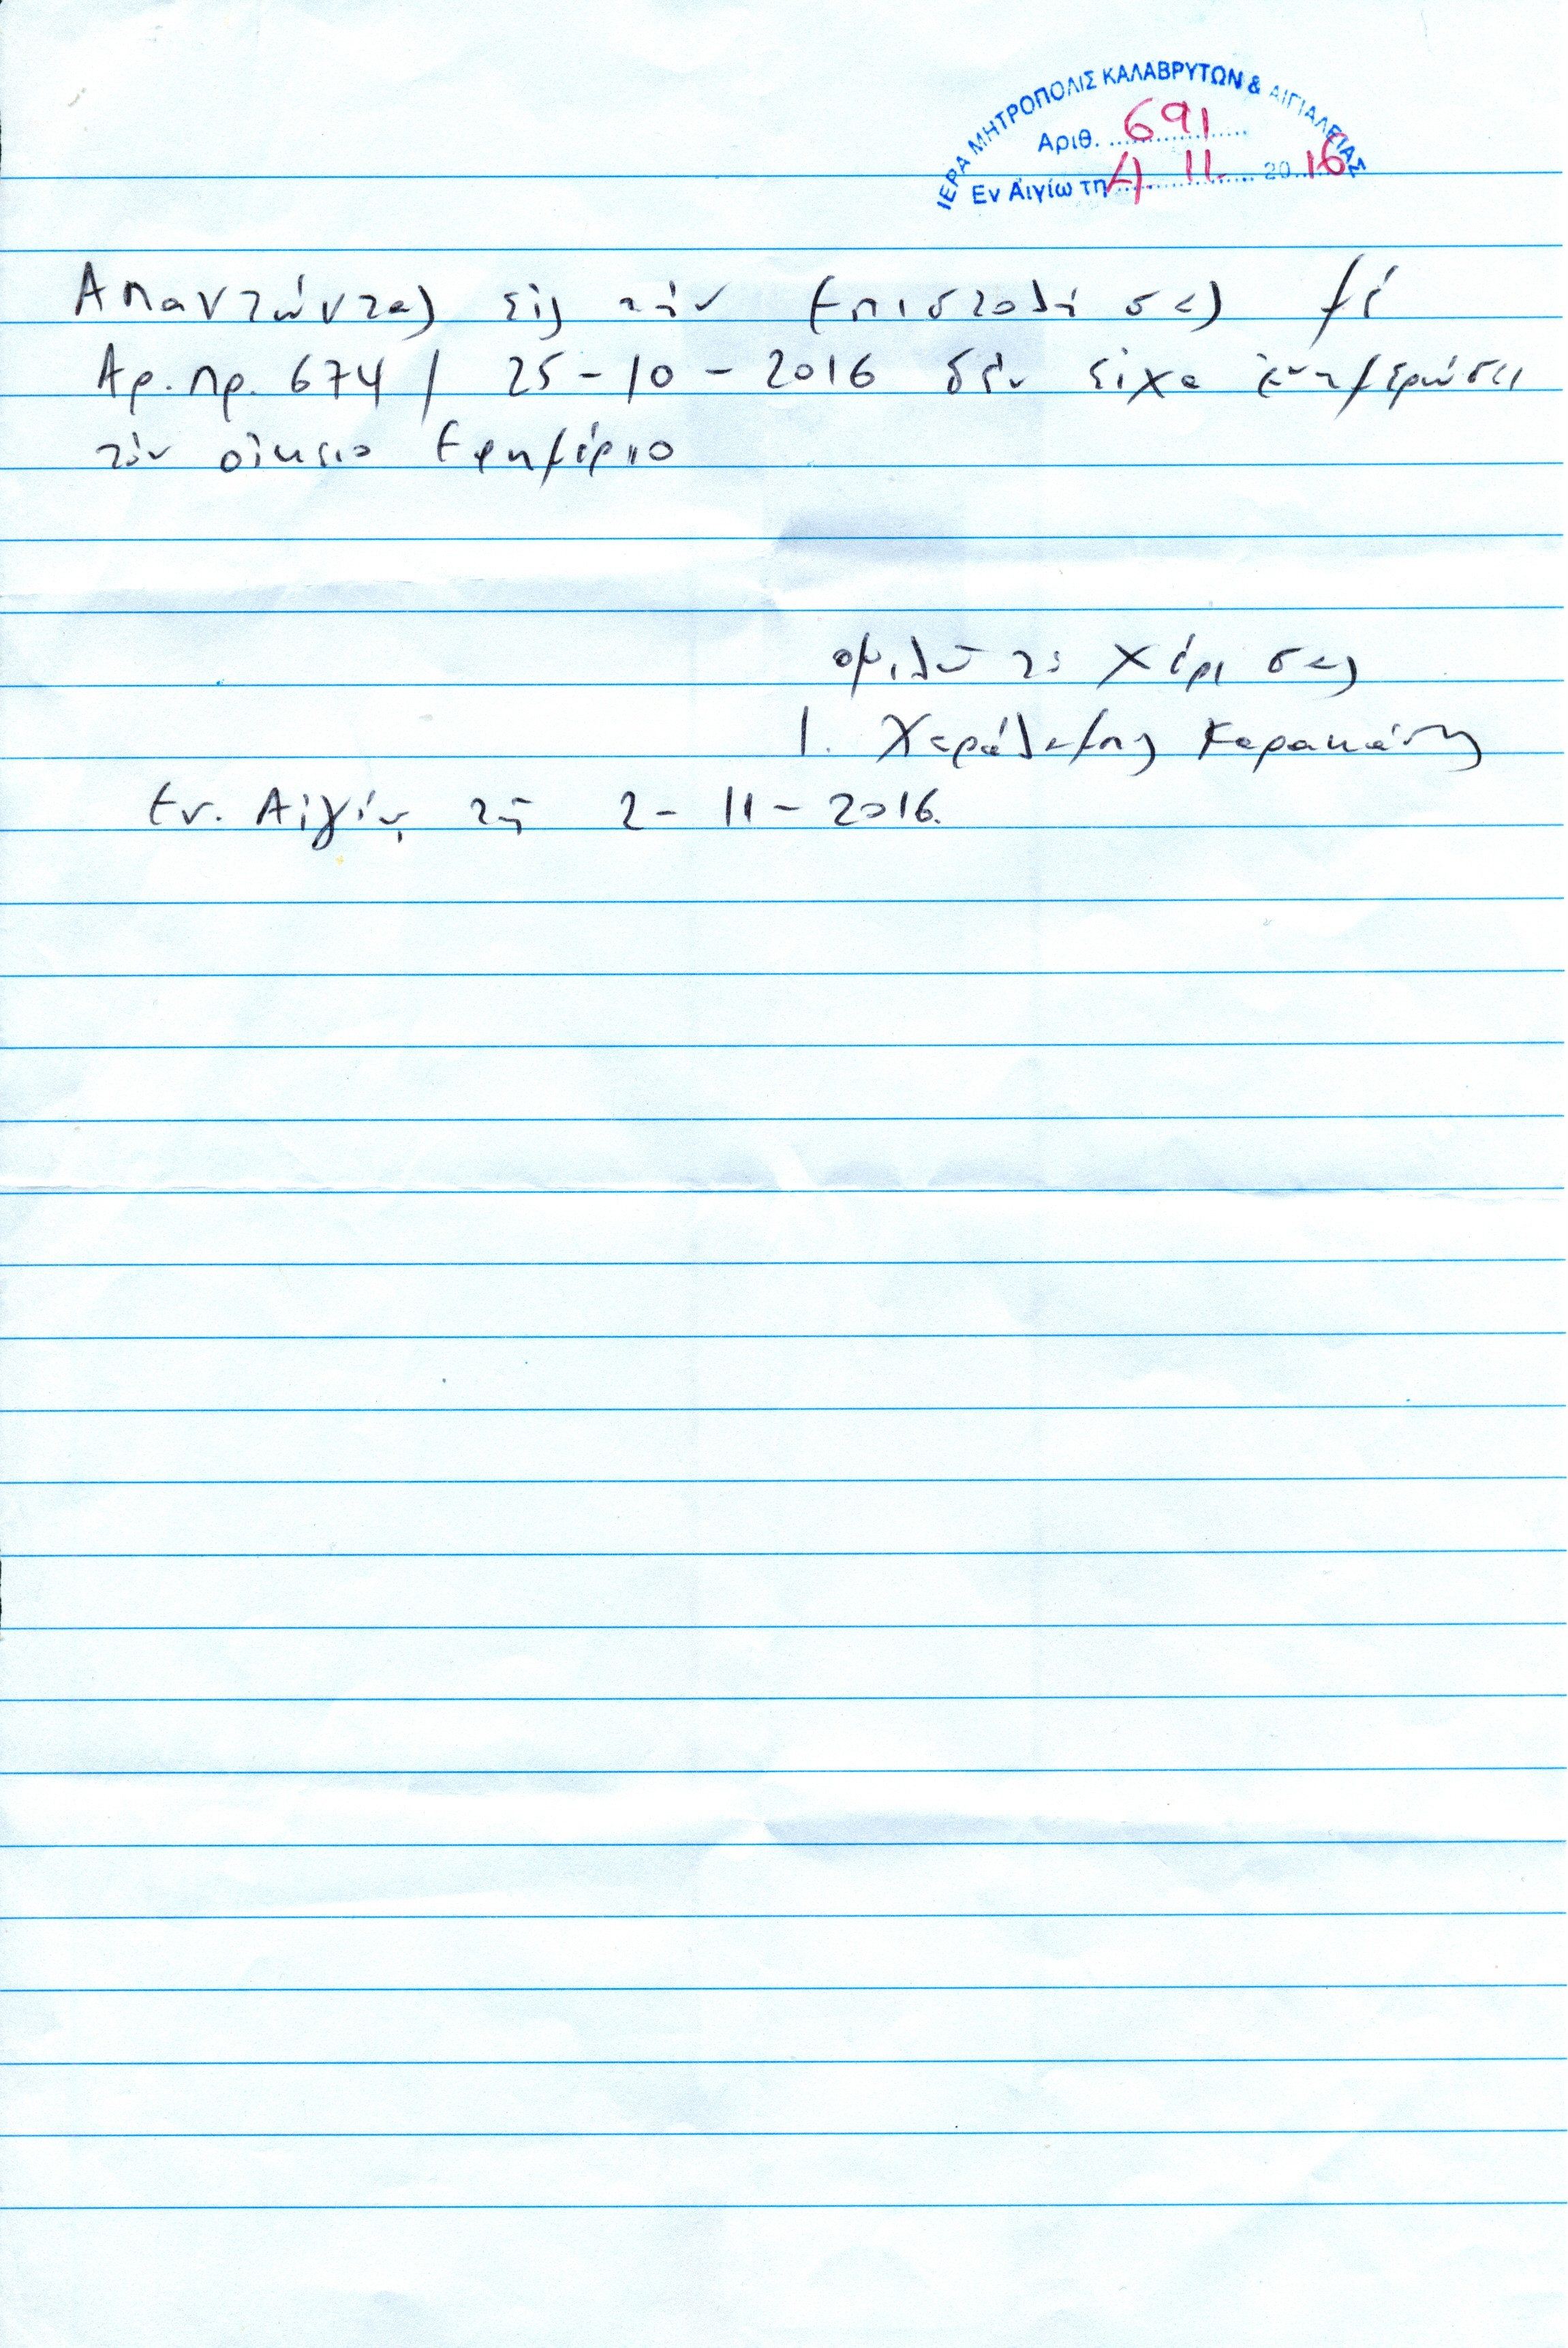 ΙΕΡΑ ΜΗΤΡΟΠΟΛΙΣ ΚΑΛΑΒΡΥΤΩΝ & ΑΙΓΙΑΛΕΙΑΣ
Αριθ. 691
Εν Αιγίω τη 4 11. 2016
Απαντώντας εἰς τήν Επιστολή σας μέ
Αρ. πρ. 674 / 25-10-2016 δέν είχα ενημερώσει
τόν οἰκείο Εφημέριο
Ι. Χαράλαμπος
Εν. Αἰγίῳ τῇ 2-11-2016.